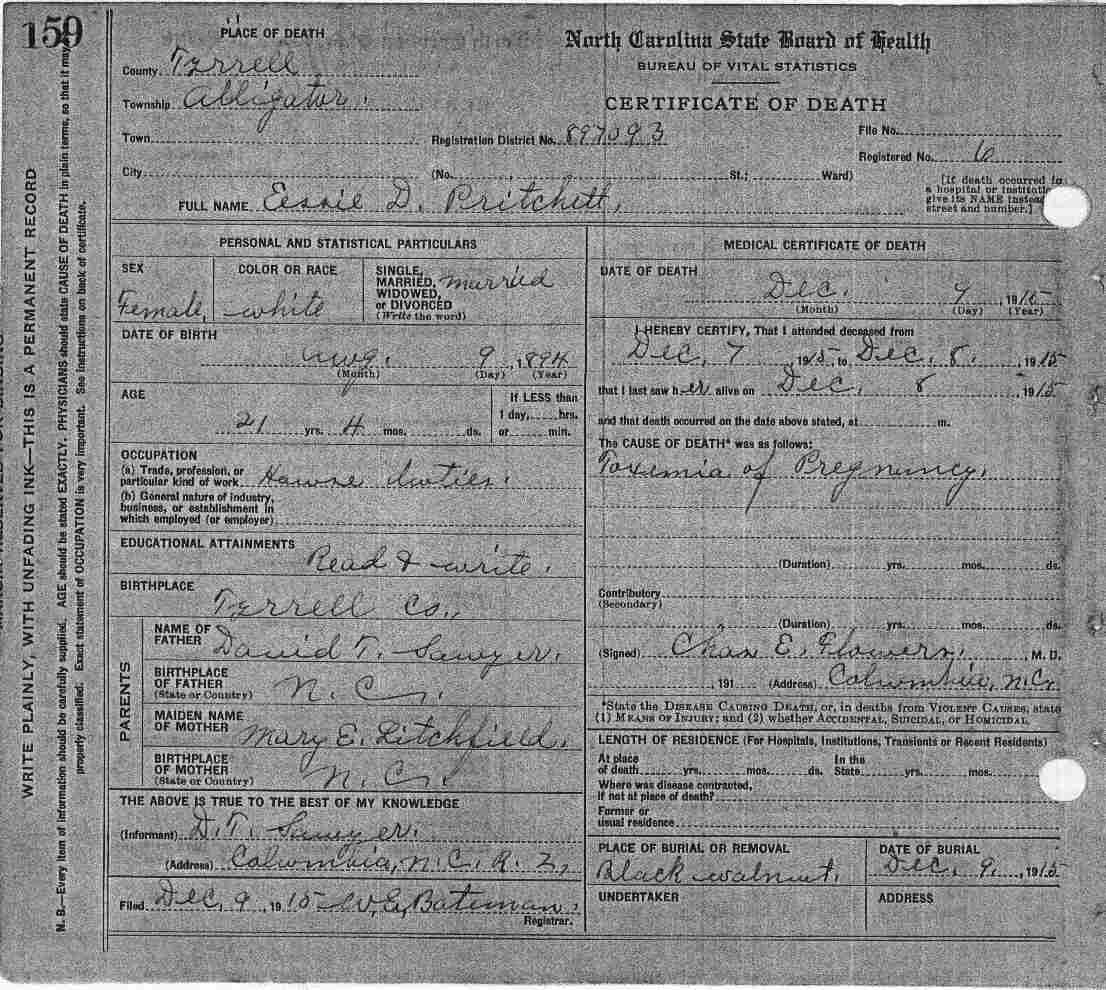 159
WRITE PLAINLY, WITH UNFADING INK—THIS IS A PERMANENT RECORD
N. B.—Every item of information should be carefully supplied. AGE should be stated EXACTLY. PHYSICIANS should state CAUSE OF DEATH in plain terms, so that it may
properly classified. Exact statement of OCCUPATION is very important. See instructions on back of certificate.
PLACE OF DEATH
County Tyrrell
Township Alligator.
Town
City
North Carolina State Board of Health
BUREAU OF VITAL STATISTICS
CERTIFICATE OF DEATH
Registration District No. 897093
File No.
Registered No. 6
(No. St.; Ward)
[If death occurred in
a hospital or institution
give its NAME instead
street and number.]
FULL NAME Essie D. Pritchett,
PERSONAL AND STATISTICAL PARTICULARS
SEX
Female,
COLOR OR RACE
white
SINGLE,
MARRIED,
WIDOWED,
or DIVORCED
(Write the word)
married
DATE OF BIRTH
Aug. 9, 1894
(Month) (Day) (Year)
AGE
21 yrs. 4 mos. ds.
If LESS than
1 day, hrs.
or min.
OCCUPATION
(a) Trade, profession, or
particular kind of work House duties.
(b) General nature of industry,
business, or establishment in
which employed (or employer)
EDUCATIONAL ATTAINMENTS
Read & write.
BIRTHPLACE
Tyrrell Co.,
PARENTS
NAME OF
FATHER
David T. Sawyer.
BIRTHPLACE
OF FATHER
(State or Country)
N. C.
MAIDEN NAME
OF MOTHER
Mary E. Litchfield.
BIRTHPLACE
OF MOTHER
(State or Country)
N. C.
THE ABOVE IS TRUE TO THE BEST OF MY KNOWLEDGE
(Informant) D. T. Sawyer.
(Address) Columbia, N.C. R. 2,
Filed Dec. 9, 1915 W. E. Bateman.
Registrar.
MEDICAL CERTIFICATE OF DEATH
DATE OF DEATH
Dec. 9, 1915
(Month) (Day) (Year)
I HEREBY CERTIFY, That I attended deceased from
Dec. 7 1915, to Dec. 8. 1915
that I last saw her alive on Dec. 8 1915
and that death occurred on the date above stated, at m.
The CAUSE OF DEATH* was as follows:
Toxemia of Pregnancy.
(Duration) yrs. mos. ds.
Contributory
(Secondary)
(Duration) yrs. mos. ds.
(Signed) Chas E. Flowers. , M. D.
, 191 (Address) Columbia, N.C.
*State the DISEASE CAUSING DEATH, or, in deaths from VIOLENT CAUSES, state
(1) MEANS OF INJURY; and (2) whether ACCIDENTAL, SUICIDAL, OR HOMICIDAL.
LENGTH OF RESIDENCE (For Hospitals, Institutions, Transients or Recent Residents)
At place
of death yrs. mos. ds.
In the
State yrs. mos.
Where was disease contracted,
if not at place of death?
Former or
usual residence
PLACE OF BURIAL OR REMOVAL
Black walnut.
DATE OF BURIAL
Dec. 9, 1915
UNDERTAKER
ADDRESS